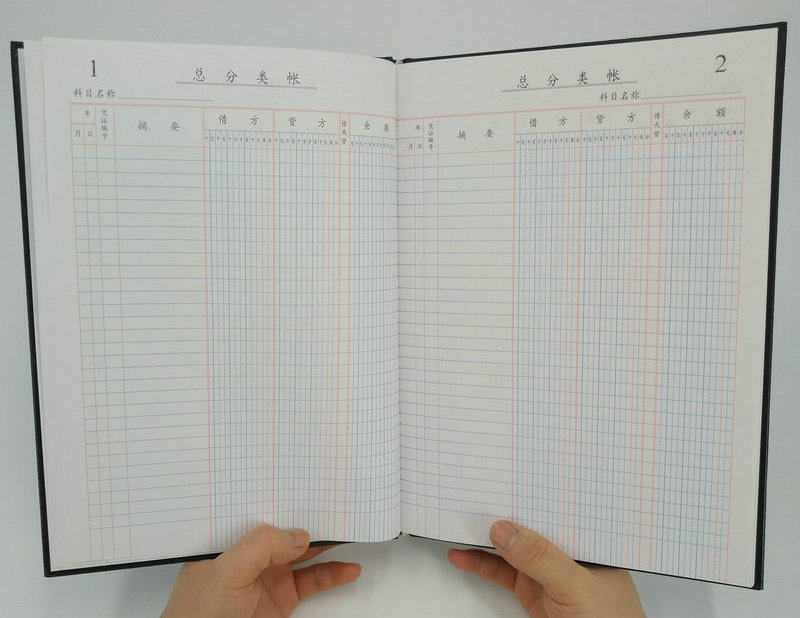 1
总分类帐
科目名称
年 凭证编号 摘要 借方 贷方 借或贷 余额
月 日
2
总分类帐
科目名称
年 凭证编号 摘要 借方 贷方 借或贷 余额
月 日